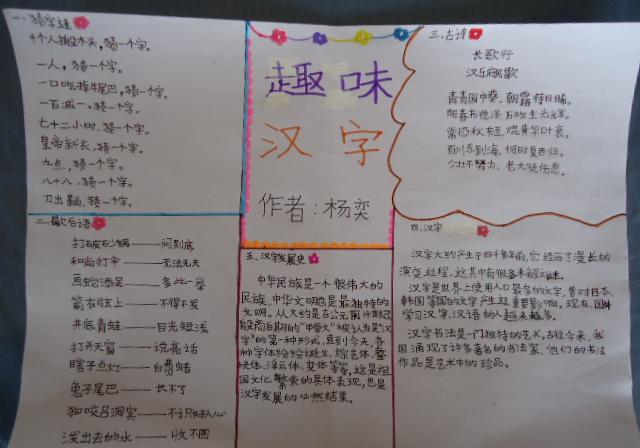 一、猜字谜
4个人搬木头，猜一个字。
一人，猜一个字。
一口吃掉牛尾巴，猜一个字。
一百减一，猜一个字。
七十二小时，猜一个字。
皇帝新衣，猜一个字。
九点，猜一个字。
八十八，猜一个字。
刀出鞘，猜一个字。
二、歇后语
打破砂锅——问到底
和尚打伞——无法无天
画蛇添足——多此一举
箭在弦上——不得不发
井底青蛙——目光短浅
打开天窗——说亮话
瞎子点灯——白费蜡
兔子尾巴——长不了
狗咬吕洞宾——不识好人心
泼出去的水——收不回
趣味
汉字
作者：杨奕
五、汉字发展史
中华民族是一个很伟大的
民族，中华文明也是最独特的
文明。从大约是在公元前14世纪
殷商后期的"甲骨文"被认为是"汉
字"的第一种形式，直到今天，各
种字体纷纷诞生，综艺体、
体、浮云体、变体等等，这是祖
国文化繁荣的具体表现，也是
汉字发展的必然结果。
三、古诗
长歌行
汉乐府民歌
青青园中葵，朝露待日晞。
阳春布德泽，万物生光辉。
常恐秋节至，焜黄华叶衰。
百川东到海，何时复西归。
少壮不努力，老大徒伤悲。
四、汉字
汉字大约产生于四千多年前，它经历了漫长的
演变过程，这其中有很多未解之谜。
汉字是世界上使用人口最多的文字，曾对日本、
韩国等国的文字产生过重要影响。现在，国外
学习汉字、汉语的人越来越多。
汉字书法是一门独特的艺术，古往今来，我
国涌现了许多著名的书法家，他们的书法
作品是艺术中的珍品。